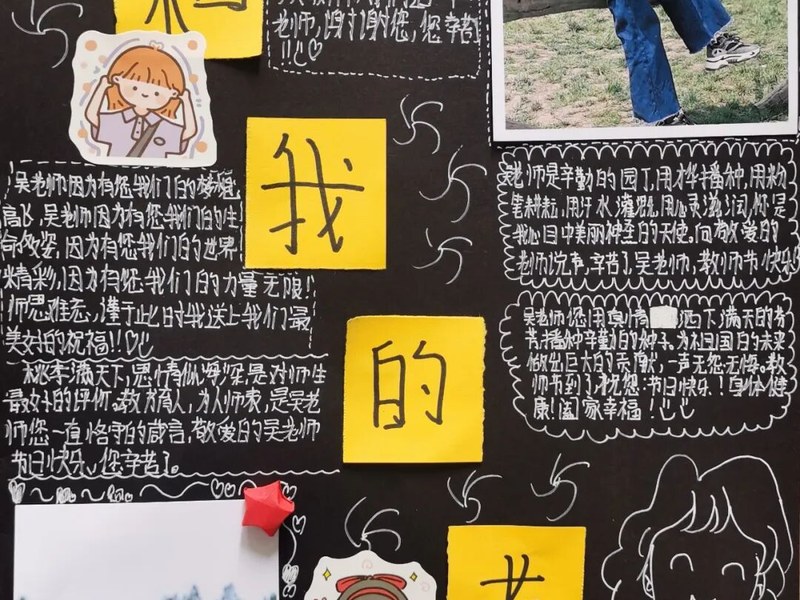 老师，谢谢您，您辛苦
!!
我
吴老师因为有您我们的梦想
高飞，吴老师因为有您我们的生
命多姿，因为有您我们的世界
精彩，因为有您我们的力量无限！
师恩难忘，谨于此时我送上我们最
美好的祝福!!
桃李满天下，恩情似海深，是对师生
最好的评价。教书育人，为人师表，是吴老
师您一直恪守的箴言，敬爱的吴老师
节日快乐，您辛苦了。
老师是辛勤的园丁，用才华播种，用粉
笔耕耘，用汗水灌溉，用心灵滋润，你是
我心目中美丽神圣的天使，向敬爱的
老师说声，辛苦了吴老师，教师节快乐
的
吴老师您用真情洒下满天的
书，播种辛勤的种子，为祖国的未来
做出巨大的贡献，一声无怨无悔。教
师节到了，祝您：节日快乐！身体健
康！阖家幸福！